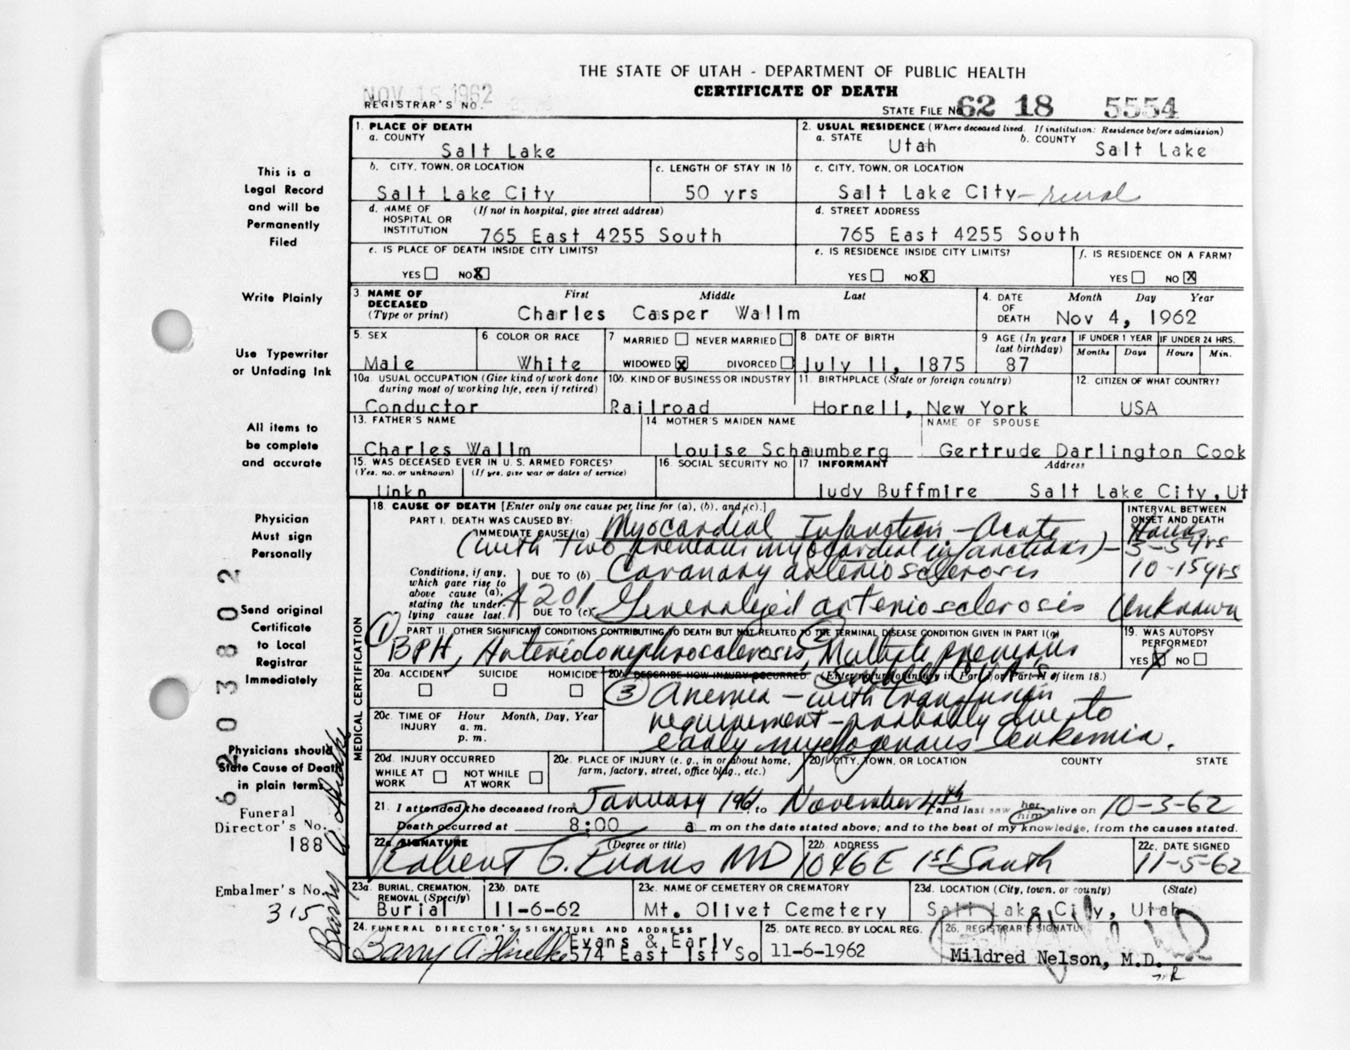 THE STATE OF UTAH - DEPARTMENT OF PUBLIC HEALTH
CERTIFICATE OF DEATH
NOV 15 1962
REGISTRAR'S NO.
STATE FILE NO. 62 18 5554
1. PLACE OF DEATH
a. COUNTY
Salt Lake
2. USUAL RESIDENCE (Where deceased lived. If institution: Residence before admission)
a. STATE
Utah
b. COUNTY
Salt Lake
b. CITY, TOWN, OR LOCATION
Salt Lake City
c. LENGTH OF STAY IN 1b
50 yrs
c. CITY, TOWN, OR LOCATION
Salt Lake City - rural
d. NAME OF HOSPITAL OR INSTITUTION
(If not in hospital, give street address)
765 East 4255 South
d. STREET ADDRESS
765 East 4255 South
e. IS PLACE OF DEATH INSIDE CITY LIMITS?
YES NO X
e. IS RESIDENCE INSIDE CITY LIMITS?
YES NO X
f. IS RESIDENCE ON A FARM?
YES NO X
3. NAME OF DECEASED
(Type or print)
First Middle Last
Charles Casper Wallm
4. DATE OF DEATH
Month Day Year
Nov 4, 1962
5. SEX
Male
6 COLOR OR RACE
White
7 MARRIED NEVER MARRIED
WIDOWED X DIVORCED
8 DATE OF BIRTH
July 11, 1875
9 AGE (In years last birthday)
87
IF UNDER 1 YEAR
Months Days
IF UNDER 24 HRS.
Hours Min.
10a. USUAL OCCUPATION (Give kind of work done during most of working life, even if retired)
Conductor
10b. KIND OF BUSINESS OR INDUSTRY
Railroad
11. BIRTHPLACE (State or foreign country)
Hornell, New York
12. CITIZEN OF WHAT COUNTRY?
USA
13. FATHER'S NAME
Charles Wallm
14 MOTHER'S MAIDEN NAME
Louise Schaumberg
NAME OF SPOUSE
Gertrude Darlington Cook
15. WAS DECEASED EVER IN U.S. ARMED FORCES?
(Yes, no, or unknown) (If yes, give war or dates of service)
Unkn
16. SOCIAL SECURITY NO.
17 INFORMANT Address
Judy Buffmire Salt Lake City, Ut
18 CAUSE OF DEATH [Enter only one cause per line for (a), (b), and (c).]
PART I. DEATH WAS CAUSED BY:
IMMEDIATE CAUSE (a) Myocardial Infarction - Acute
(with two previous myocardial infarctions) -
INTERVAL BETWEEN ONSET AND DEATH
Hours
3-5 yrs
Conditions, if any, which gave rise to above cause (a), stating the underlying cause last.
DUE TO (b) Coronary arteriosclerosis
10-15 yrs
DUE TO (c) Generalized arteriosclerosis
Unknown
420.1
PART II. OTHER SIGNIFICANT CONDITIONS CONTRIBUTING TO DEATH BUT NOT RELATED TO THE TERMINAL DISEASE CONDITION GIVEN IN PART I(a)
(1) BPH, Arteriolonephrosclerosis, (2) Multiple previous
small CVA's
19. WAS AUTOPSY PERFORMED?
YES X NO
20a. ACCIDENT SUICIDE HOMICIDE
20b DESCRIBE HOW INJURY OCCURRED. (Enter nature of injury in Part I or Part II of item 18.)
(3) Anemia - with transfusion
requirement - probably due to
early myelogenous leukemia.
20c. TIME OF INJURY
Hour Month, Day, Year
a. m.
p. m.
20d. INJURY OCCURRED
WHILE AT WORK NOT WHILE AT WORK
20e. PLACE OF INJURY (e. g., in or about home, farm, factory, street, office bldg., etc.)
20f. CITY, TOWN, OR LOCATION COUNTY STATE
21. I attended the deceased from January 1961 to November 4th and last saw her him alive on 10-3-62
Death occurred at 8:00 a m on the date stated above; and to the best of my knowledge, from the causes stated.
22a. SIGNATURE (Degree or title)
Robert G. Evans MD
22b. ADDRESS
1046 E 1st South
22c. DATE SIGNED
11-5-62
23a. BURIAL, CREMATION, REMOVAL (Specify)
Burial
23b. DATE
11-6-62
23c. NAME OF CEMETERY OR CREMATORY
Mt. Olivet Cemetery
23d. LOCATION (City, town, or county) (State)
Salt Lake City, Utah
24. FUNERAL DIRECTOR'S SIGNATURE AND ADDRESS
Evans & Early
574 East 1st So
25. DATE RECD. BY LOCAL REG.
11-6-1962
26. REGISTRAR'S SIGNATURE
Mildred Nelson, M.D.
MEDICAL CERTIFICATION
This is a
Legal Record
and will be
Permanently
Filed
Write Plainly
Use Typewriter
or Unfading Ink
All items to
be complete
and accurate
Physician
Must sign
Personally
Send original
Certificate
to Local
Registrar
Immediately
Physicians should
State Cause of Death
in plain terms
Funeral
Director's No.
188
Embalmer's No.
315
62 03802